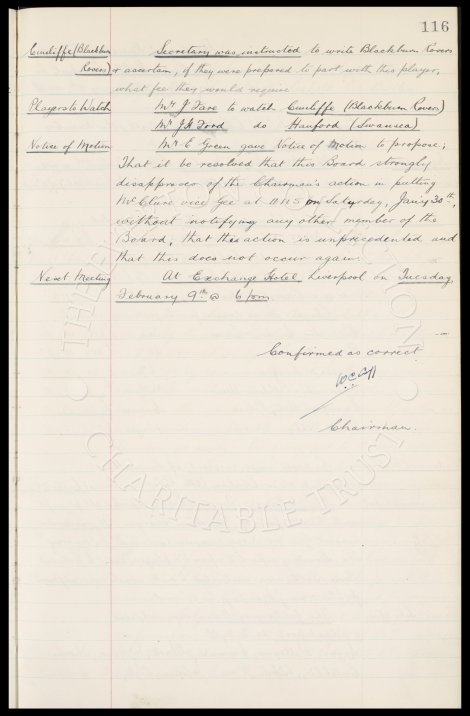 116
Cunliffe (Blackburn Secretary was instructed to write Blackburn Rovers
Rovers) & ascertain, if they were prepared to part with this player,
what fee they would require
Players to Watch Mr J Fare to watch Cunliffe (Blackburn Rovers)
Mr J H Ford do Hanford (Swansea)
Notice of Motion Mr E Green gave Notice of Motion to propose;
That it be resolved that this Board strongly
disapproves of the Chairman's action in putting
McClure vice Gee at 11.45 on Saturday, Jany 30th,
without notifying any other member of the
Board, that this action is unprecedented and
that this does not occur again.
Next Meeting At Exchange Hotel, Liverpool on Tuesday,
February 9th @ 6 pm
Confirmed as correct
Chairman.
CHARITABLE TRUST